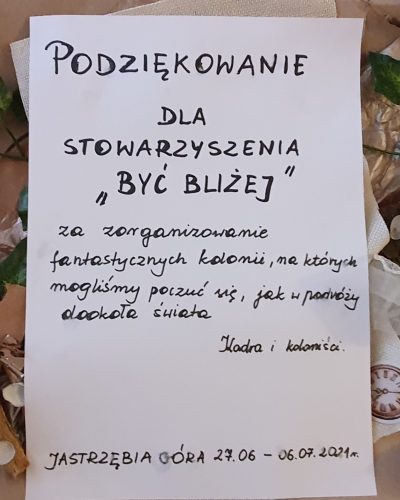 PODZIĘKOWANIE
DLA
STOWARZYSZENIA
„BYĆ BLIŻEJ"
za zorganizowanie
fantastycznych kolonii, na których
mogliśmy poczuć się, jak w podróży
dookoła świata
Kadra i koloniści.
JASTRZĘBIA GÓRA 27.06 - 06.07.2021r.